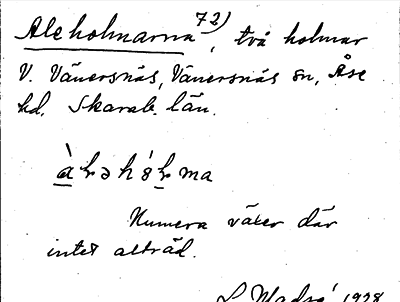 Aleholmarna 72), två holmar
V. Vänersnäs, Vänersnäs sn, Åse
hd. Skarab. län.
Numera växer där
intet alträd.
1928